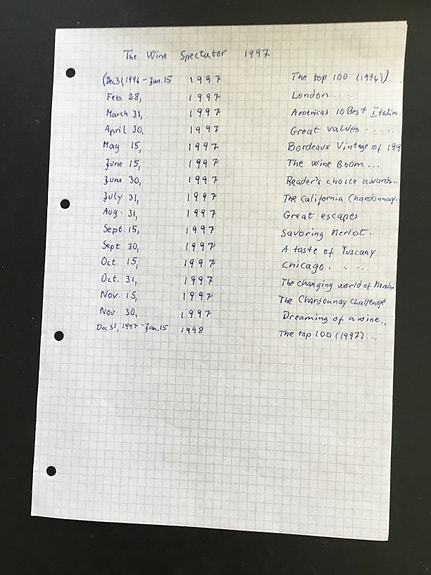 The Wine Spectator 1997
(Dec 31, 1996 - Jan. 15 1997 The top 100 (1996))
Feb. 28, 1997 London....
March 31, 1997 America's 10 Best Italian
April 30, 1997 Great values ......
May 15, 1997 Bordeaux Vintage of 199
June 15, 1997 The wine Boom...
June 30, 1997 Reader's choice awards...
July 31, 1997 The California Chardonnay..
Aug. 31, 1997 Great escapes
Sept. 15, 1997 Savoring Merlot...
Sept. 30, 1997 A taste of Tuscany
Oct. 15, 1997 Chicago....
Oct. 31, 1997 The changing world of
Nov. 15, 1997 The Chardonnay Challenge
Nov. 30, 1997 Dreaming of a wine..
Dec 31, 1997 - Jan. 15 1998 The top 100 (1997)...